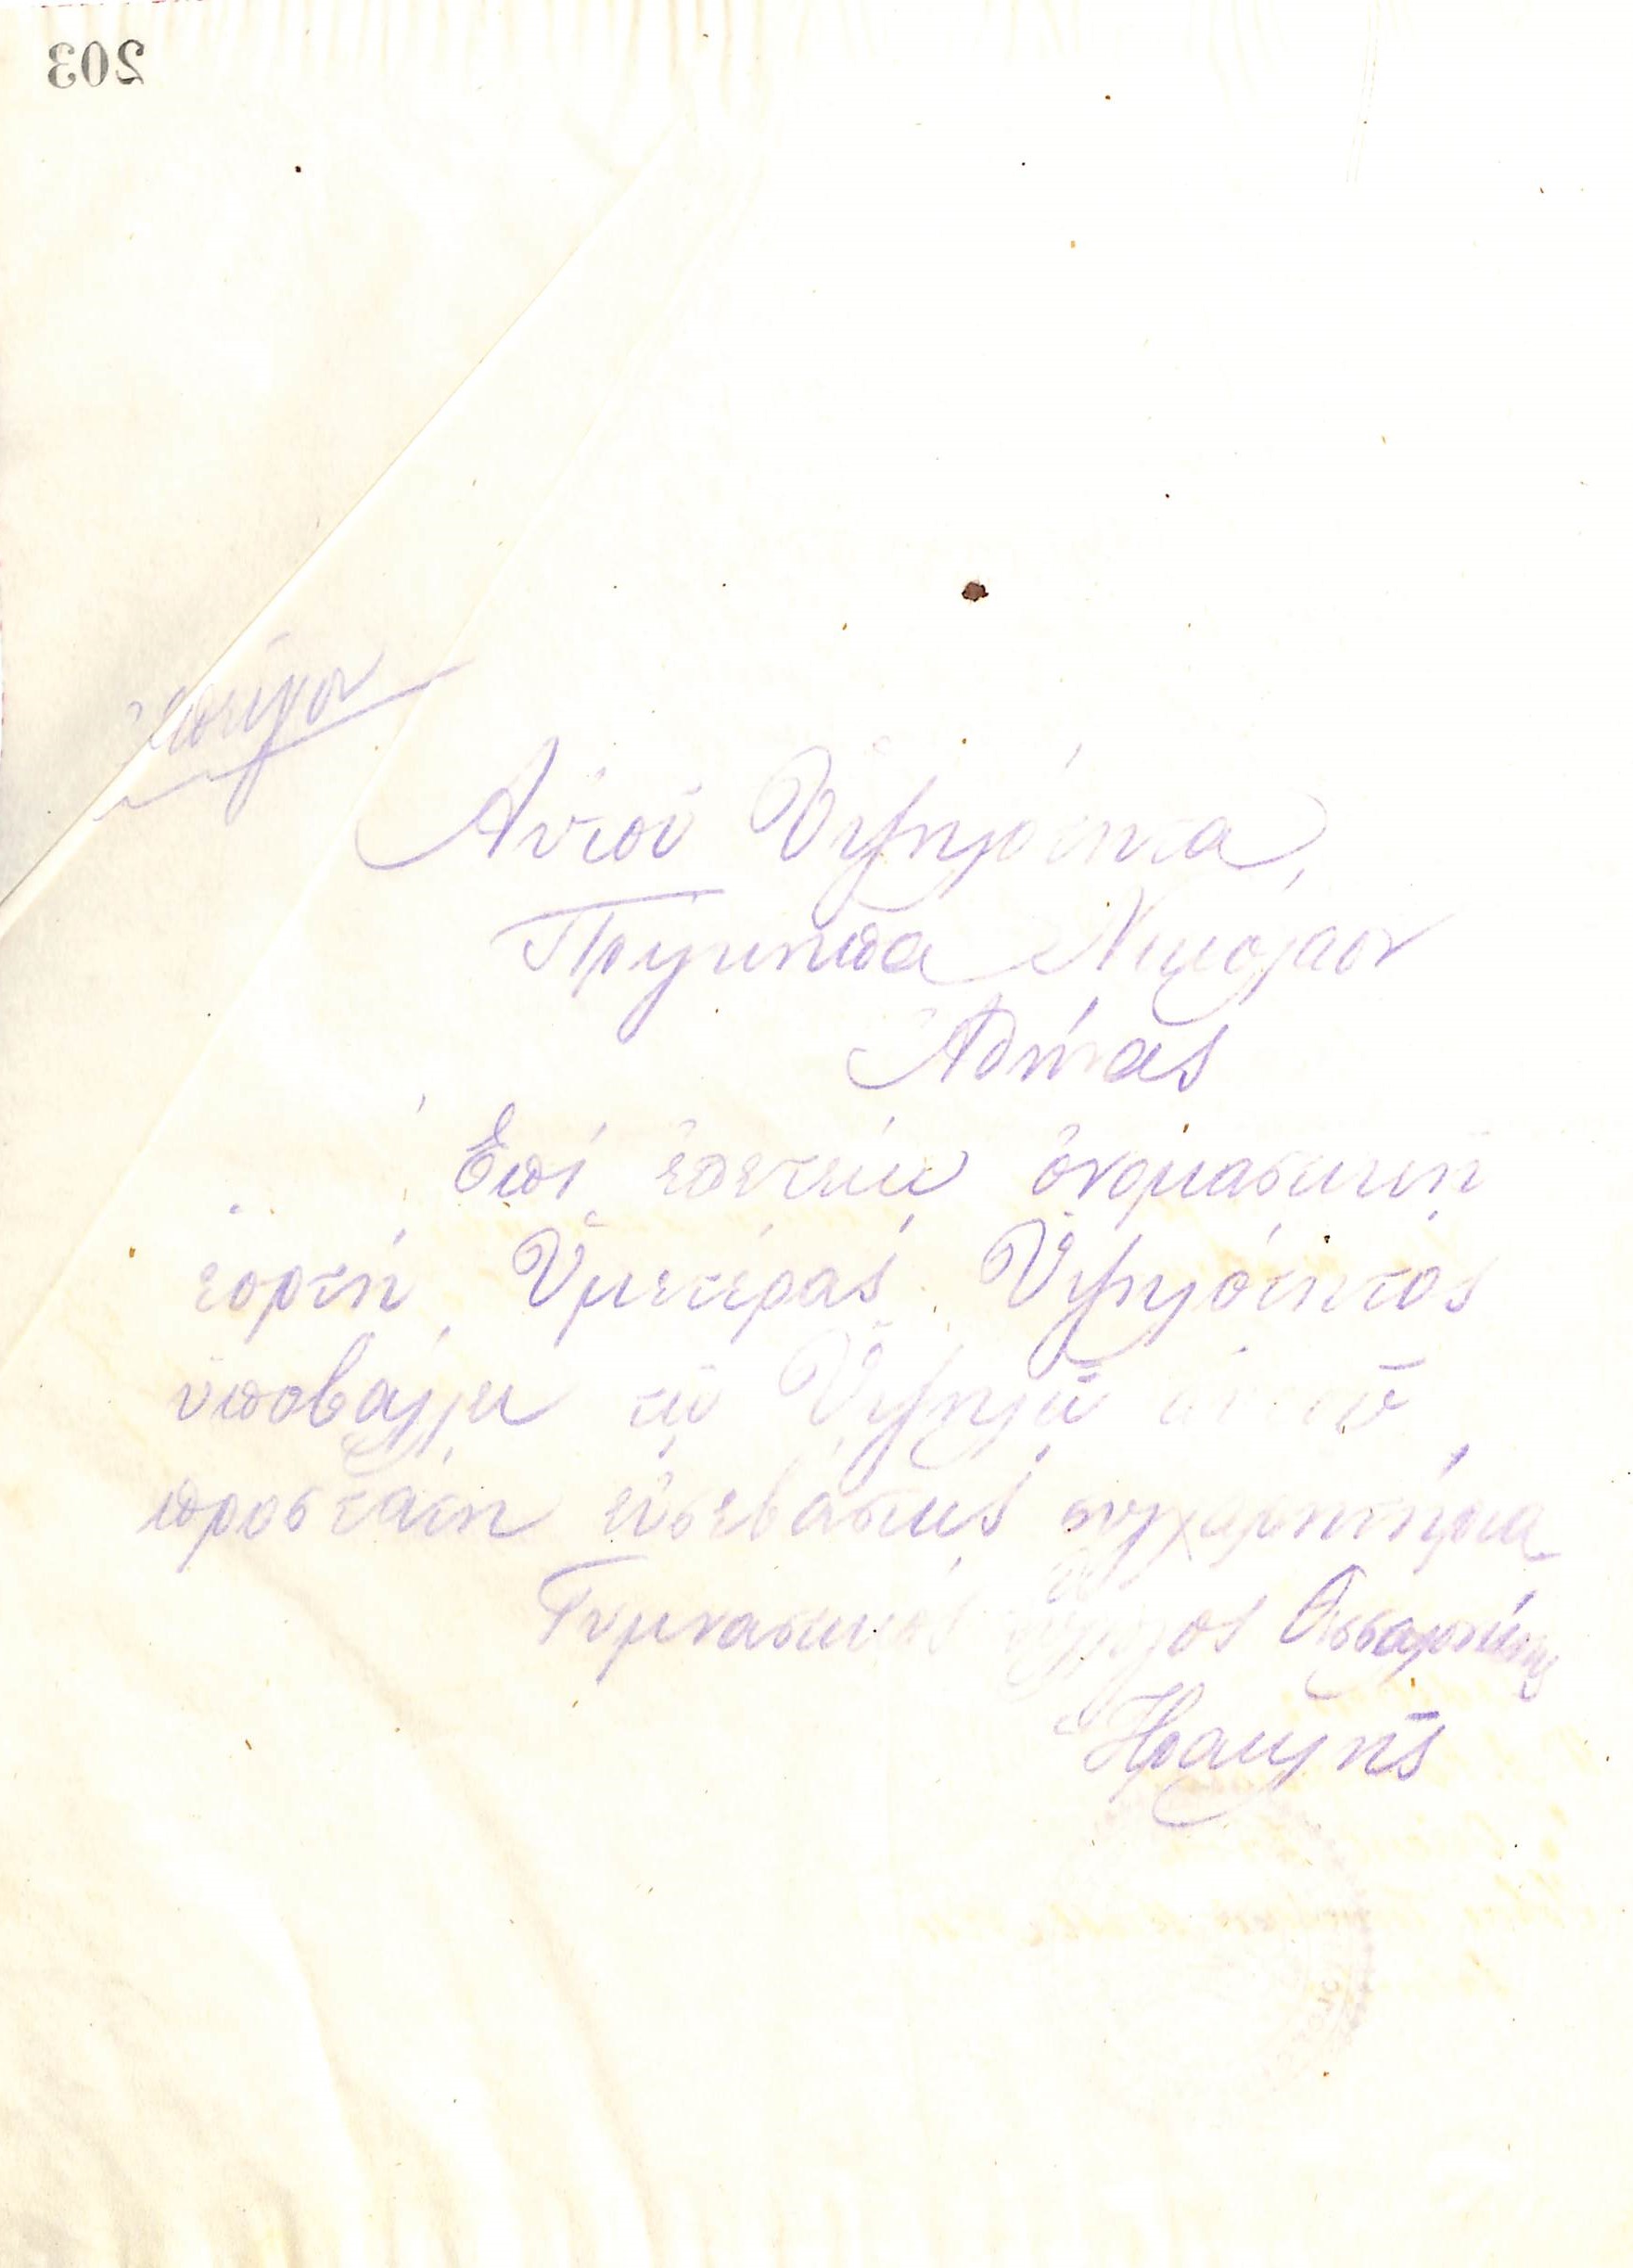 203
Ἐπεῖγον
Αὐτοῦ Ὑψηλότητα,
Πρίγκηπα Νικόλαον
Ἀθήνας
Ἐπὶ ἐπετείῳ ὀνομαστικῇ
ἑορτῇ Ὑμετέρας Ὑψηλότητος
ὑποβάλλει τῷ Ὑψηλῷ αὐτοῦ
προστάτῃ εὐσεβάστως συγχαρητήρια
Γυμναστικὸς Σύλλογος Θεσσαλονίκης
Ἡρακλῆς